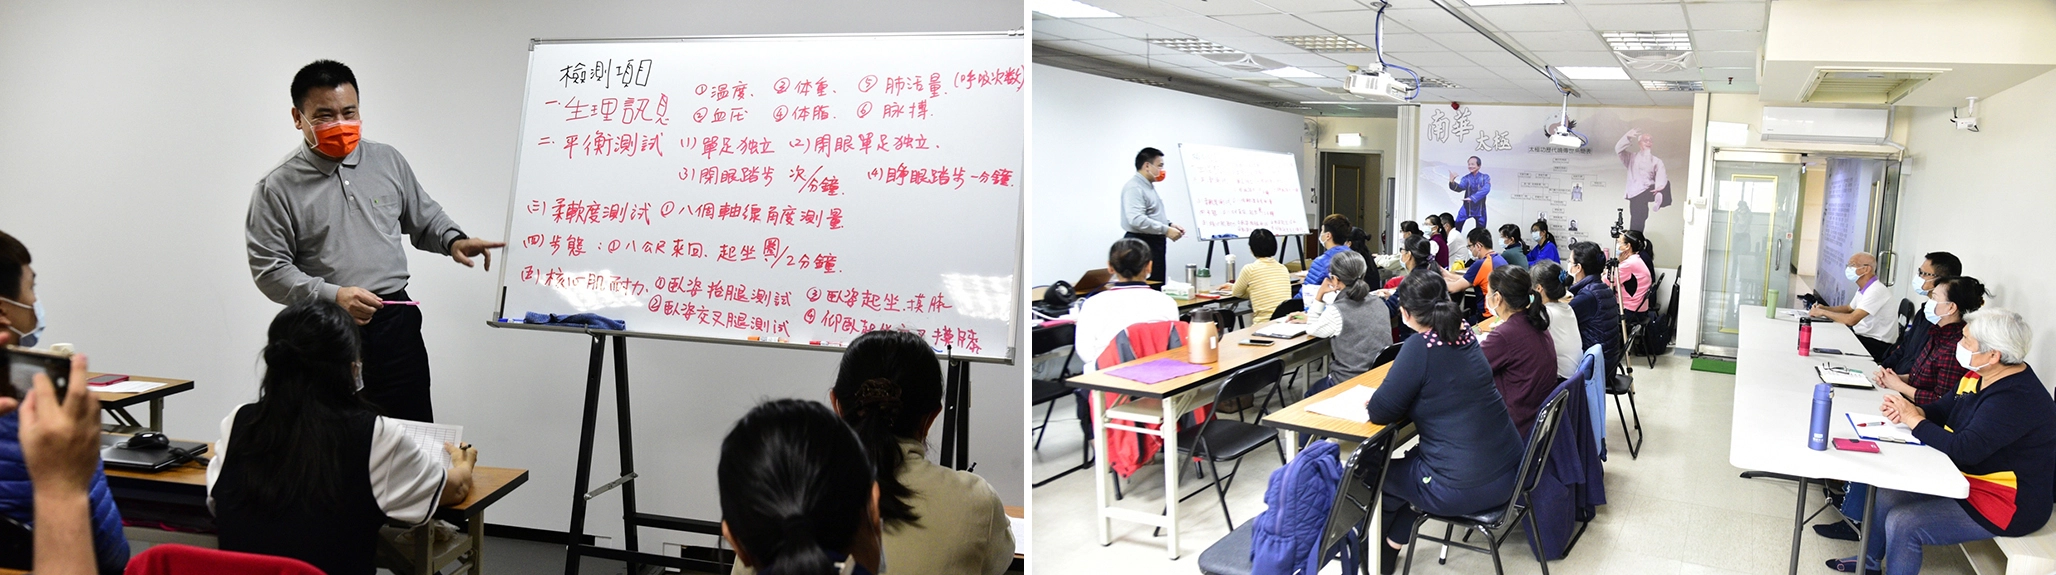 檢測項目
一. 生理訊息 ①溫度. ③体重. ⑤肺活量.(呼吸次數)
②血圧 ④体脂. ⑥脉搏.
二. 平衡測試 (1)單足独立 (2)閉眼單足独立.
(3)閉眼踏步 次/分鐘. (4)睜眼踏步一分鐘.
(三)柔軟度測試 ①八個軸線角度測量
(四)步態：①八公尺來回. 起坐圈/2分鐘.
(五)核心肌耐力. ①臥姿抬腿測試 ③臥姿起坐.摸膝
②臥姿交叉腿測試 ④仰臥 摸膝
南華
太極